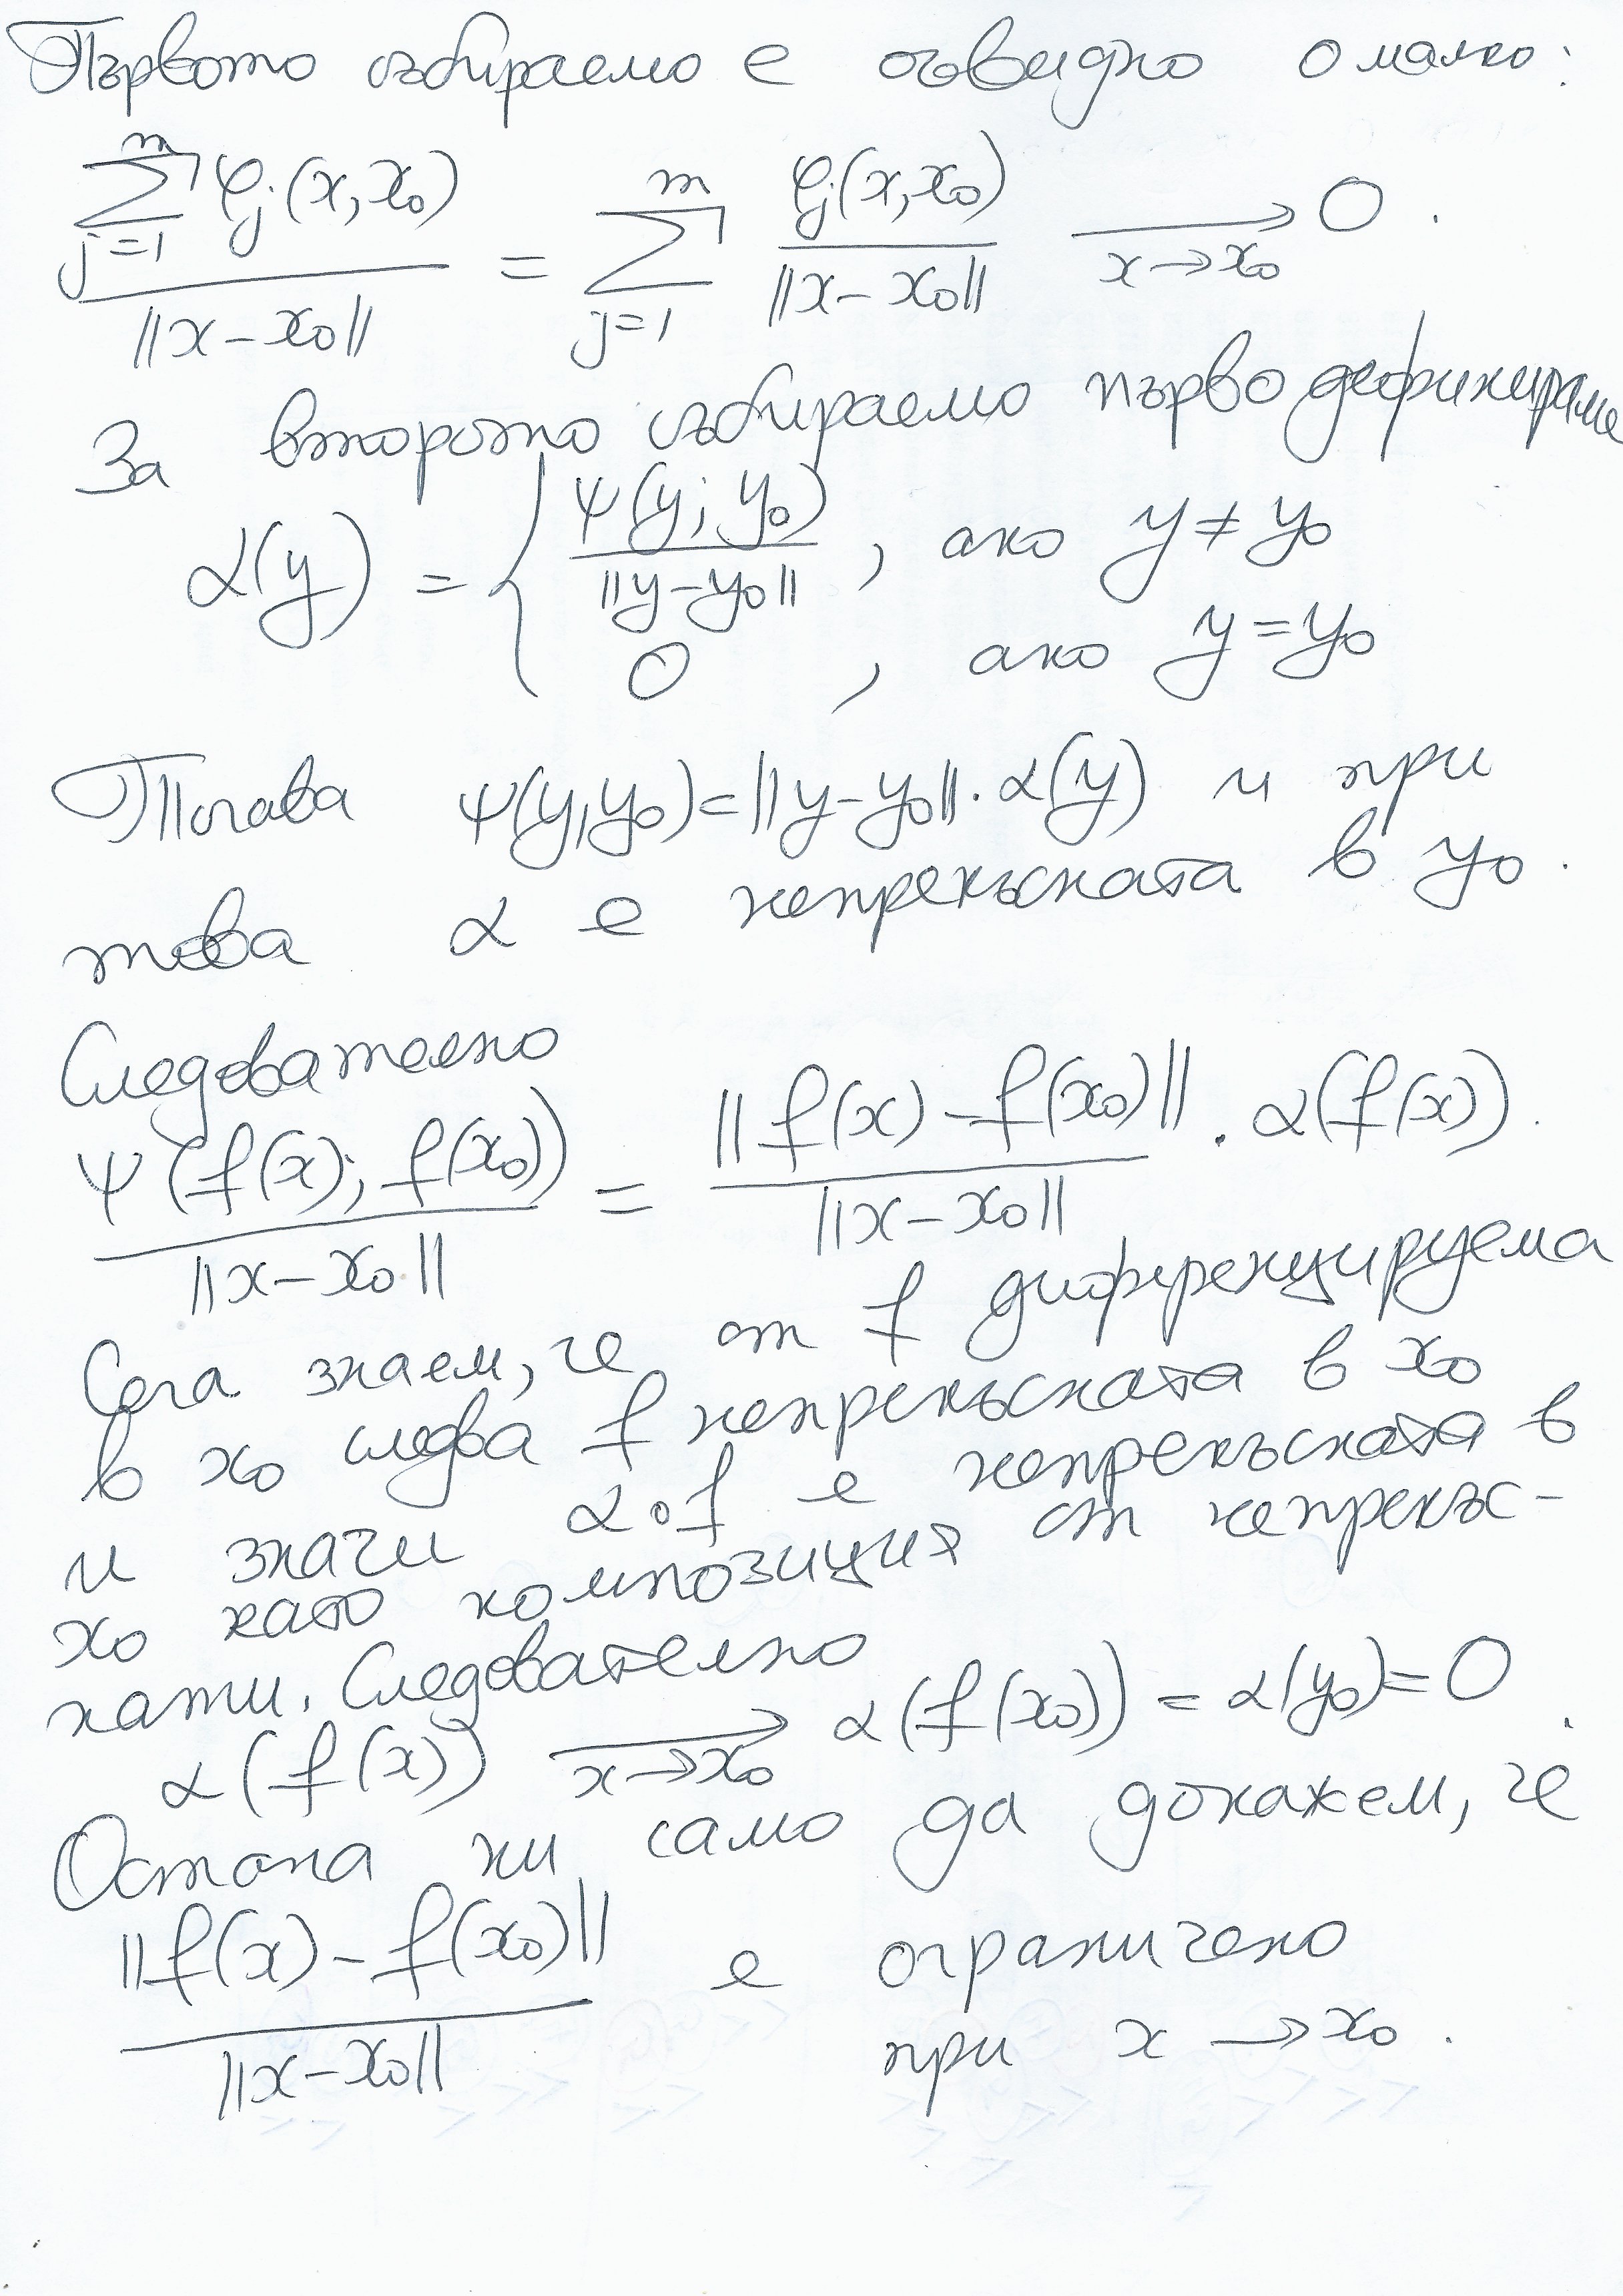 Първото събираемо е очевидно о малко:
$\frac{\sum_{j=1}^{m} \varphi_j(x, x_0)}{\|x - x_0\|} = \sum_{j=1}^{m} \frac{\varphi_j(x, x_0)}{\|x - x_0\|} \xrightarrow[x \to x_0]{} 0.$
За второто събираемо първо дефинираме
$\alpha(y) = \begin{cases} \frac{\psi(y; y_0)}{\|y - y_0\|}, & \text{ако } y \neq y_0 \\ 0, & \text{ако } y = y_0 \end{cases}$
Тогава $\psi(y, y_0) = \|y - y_0\| . \alpha(y)$ и при
това $\alpha$ е непрекъсната в $y_0$.
Следователно
$\frac{\psi(f(x); f(x_0))}{\|x - x_0\|} = \frac{\|f(x) - f(x_0)\|}{\|x - x_0\|} . \alpha(f(x)).$
Сега знаем, че от $f$ диференцируема
в $x_0$ следва $f$ непрекъсната в $x_0$
и значи $\alpha \circ f$ е непрекъсната в
$x_0$ като композиция от непрекъс-
нати. Следователно
$\alpha(f(x)) \xrightarrow[x \to x_0]{} \alpha(f(x_0)) = \alpha(y_0) = 0.$
Остана ни само да докажем, че
$\frac{\|f(x) - f(x_0)\|}{\|x - x_0\|}$ е ограничено
при $x \to x_0$.